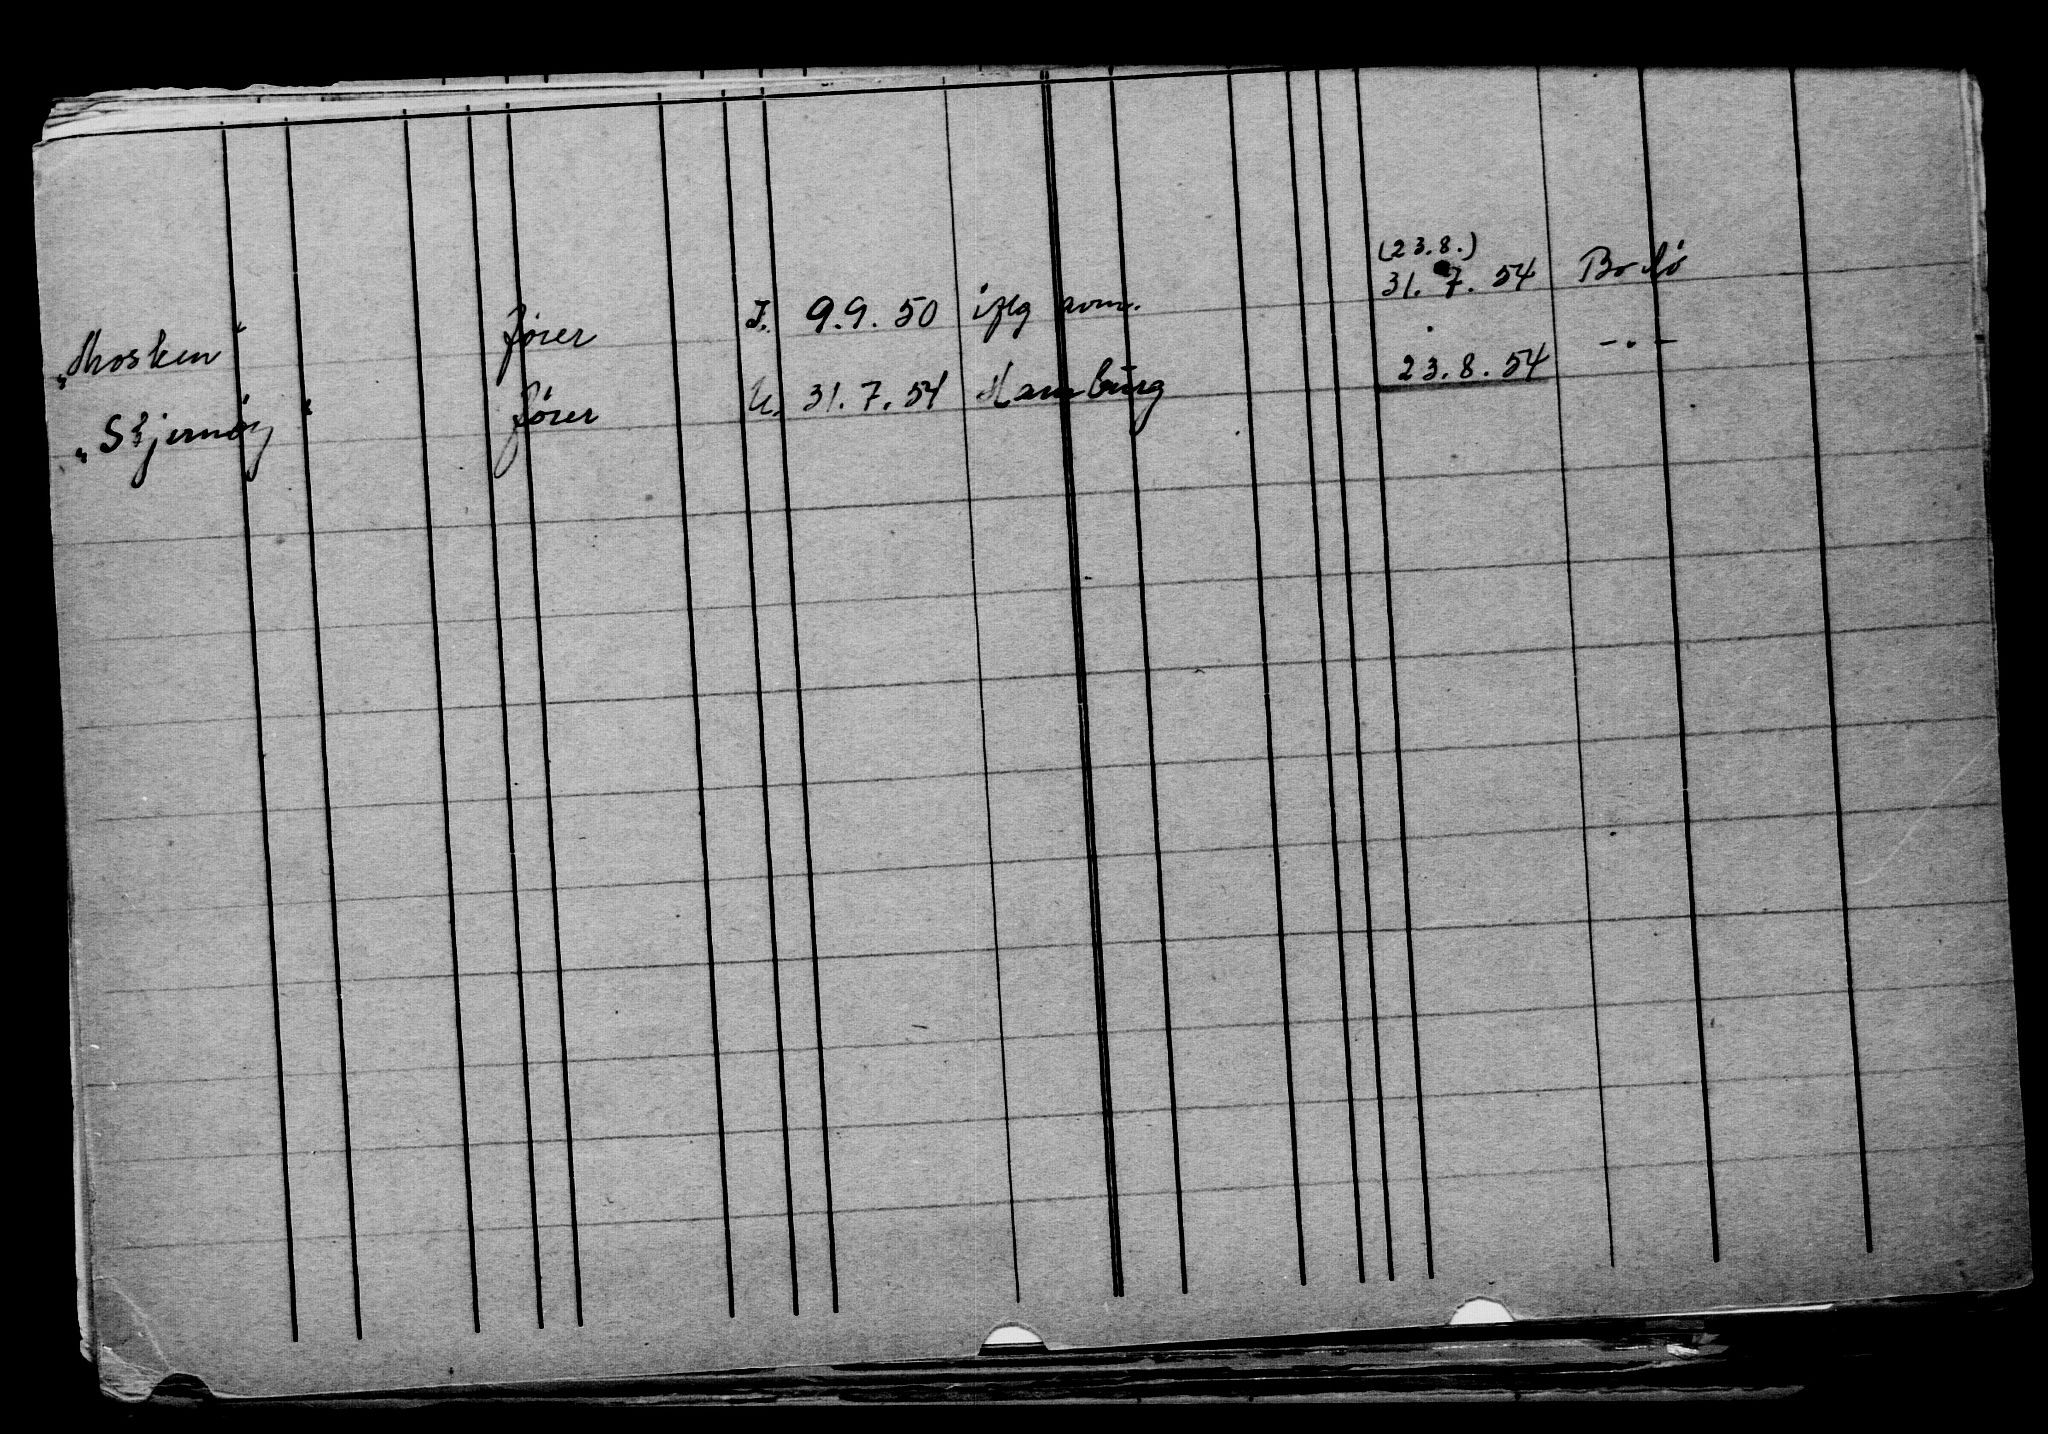 (23.8.)
„Mosken" fører I. 9.9.50 iflg rom. 31.7.54 Bodø
„Stjernøy" fører U. 31.7.54 Hamburg 23.8.54 -.-